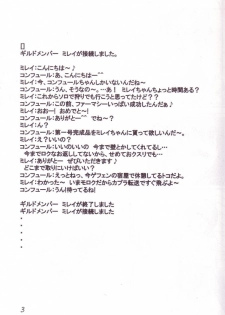 []
ギルドメンバー ミレイが接続しました。
ミレイ:こんにちは~♪
コンフュール:あ、こんにちは~^^
ミレイ:今、コンフュールちゃんしかいないんだね~
コンフュール:うん、そうなの~…あ! ミレイちゃんちょっと時間ある?
ミレイ:これからソロで狩りでも行こうと思ってたけど?
コンフュール:この前、ファーマシーいっぱい成功したんだぁ♪
ミレイ:おおー! おめでと~!
コンフュール:ありがとー^^ でね~?
ミレイ:ん?
コンフュール:第一号完成品をミレイちゃんに貰って欲しいんだけど~
ミレイ:え?いいの?
コンフュール:いいのいいの 今まで壁とかしてくれてるし…
今までロクなお返ししてないから、せめておクスリでも…
ミレイ:ありがとー ぜひいただきます♪
どこまで取りにいけばいい?
コンフュール:えっとねっ、今ゲフェンの宿屋で休憩してるトコだよ。
ミレイ:わかった~ いまモロクだからカプラ転送ですぐ飛ぶよ~
コンフュール:うん!待ってるね!
ギルドメンバー ミレイが終了しました
ギルドメンバー ミレイが接続しました
・
・
・
・
3